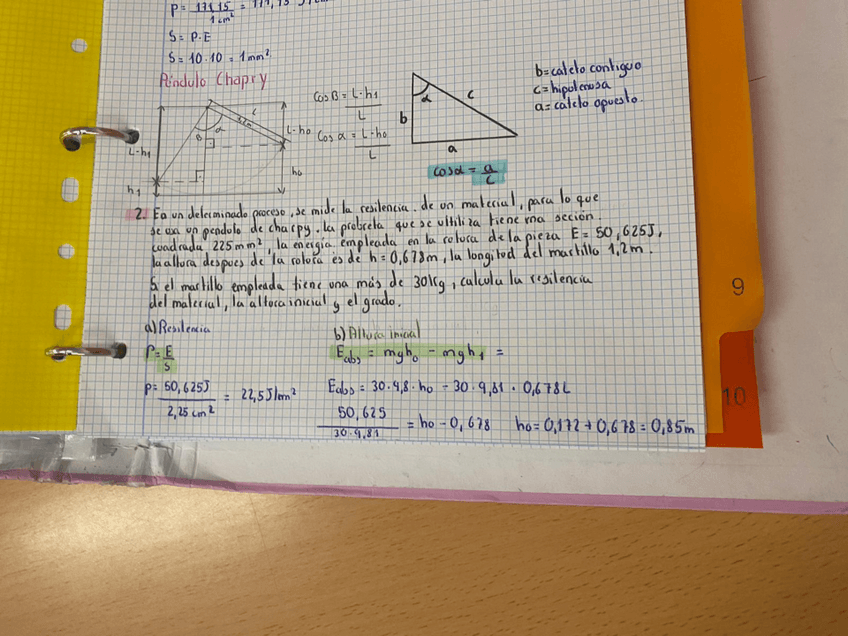 P = 171,15 / 1 cm² = 171,15 J/
S = P.E
S = 10.10 = 1mm².
Péndulo Chapry
cos B = L-h1 / L
cos α = L-ho / L
L
1,2m
B
α
L-h1
L-ho
h1
ho
α
c
b
a
cosα = a / c
b=cateto contiguo
c=hipotenusa
a=cateto opuesto.
2. En un determinado proceso, se mide la resilencia. de un material, para lo que
se usa un pendolo de charpy. la probreta que se ultiliza tiene una seción.
cuadrada 225mm², la energía. empleada en la rotura de la pieza E = 50,625J,
la altura despues de la rotura es de h=0,678m, la longitud del martillo 1,2m.
Si el martillo empleada tiene una más de 30Kg, calcula la resilencia
del material, la altura inicial y el grado.
a) Resilencia
P = E / S
P = 50,625J / 2,25 cm² = 22,5J/cm²
b) Altura inicial
Eabs = mgho - mgh1 =
Eabs = 30.9,8.ho - 30.9,81 . 0,678
50,625 / 30.9,81 = ho - 0,678 ho= 0,172 + 0,678 = 0,85m
9
10